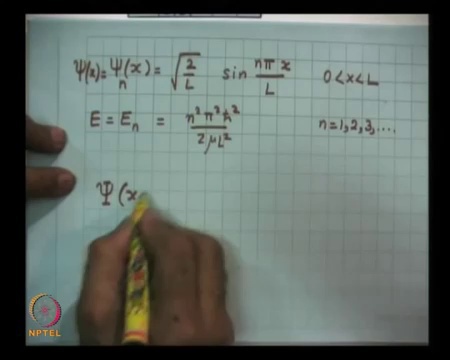 ψ(x) = ψn(x) = √(2/L) sin nπx/L 0 < x < L
E = En = n²π²ħ²/2μL² n = 1, 2, 3, ....
Ψ(x
NPTEL